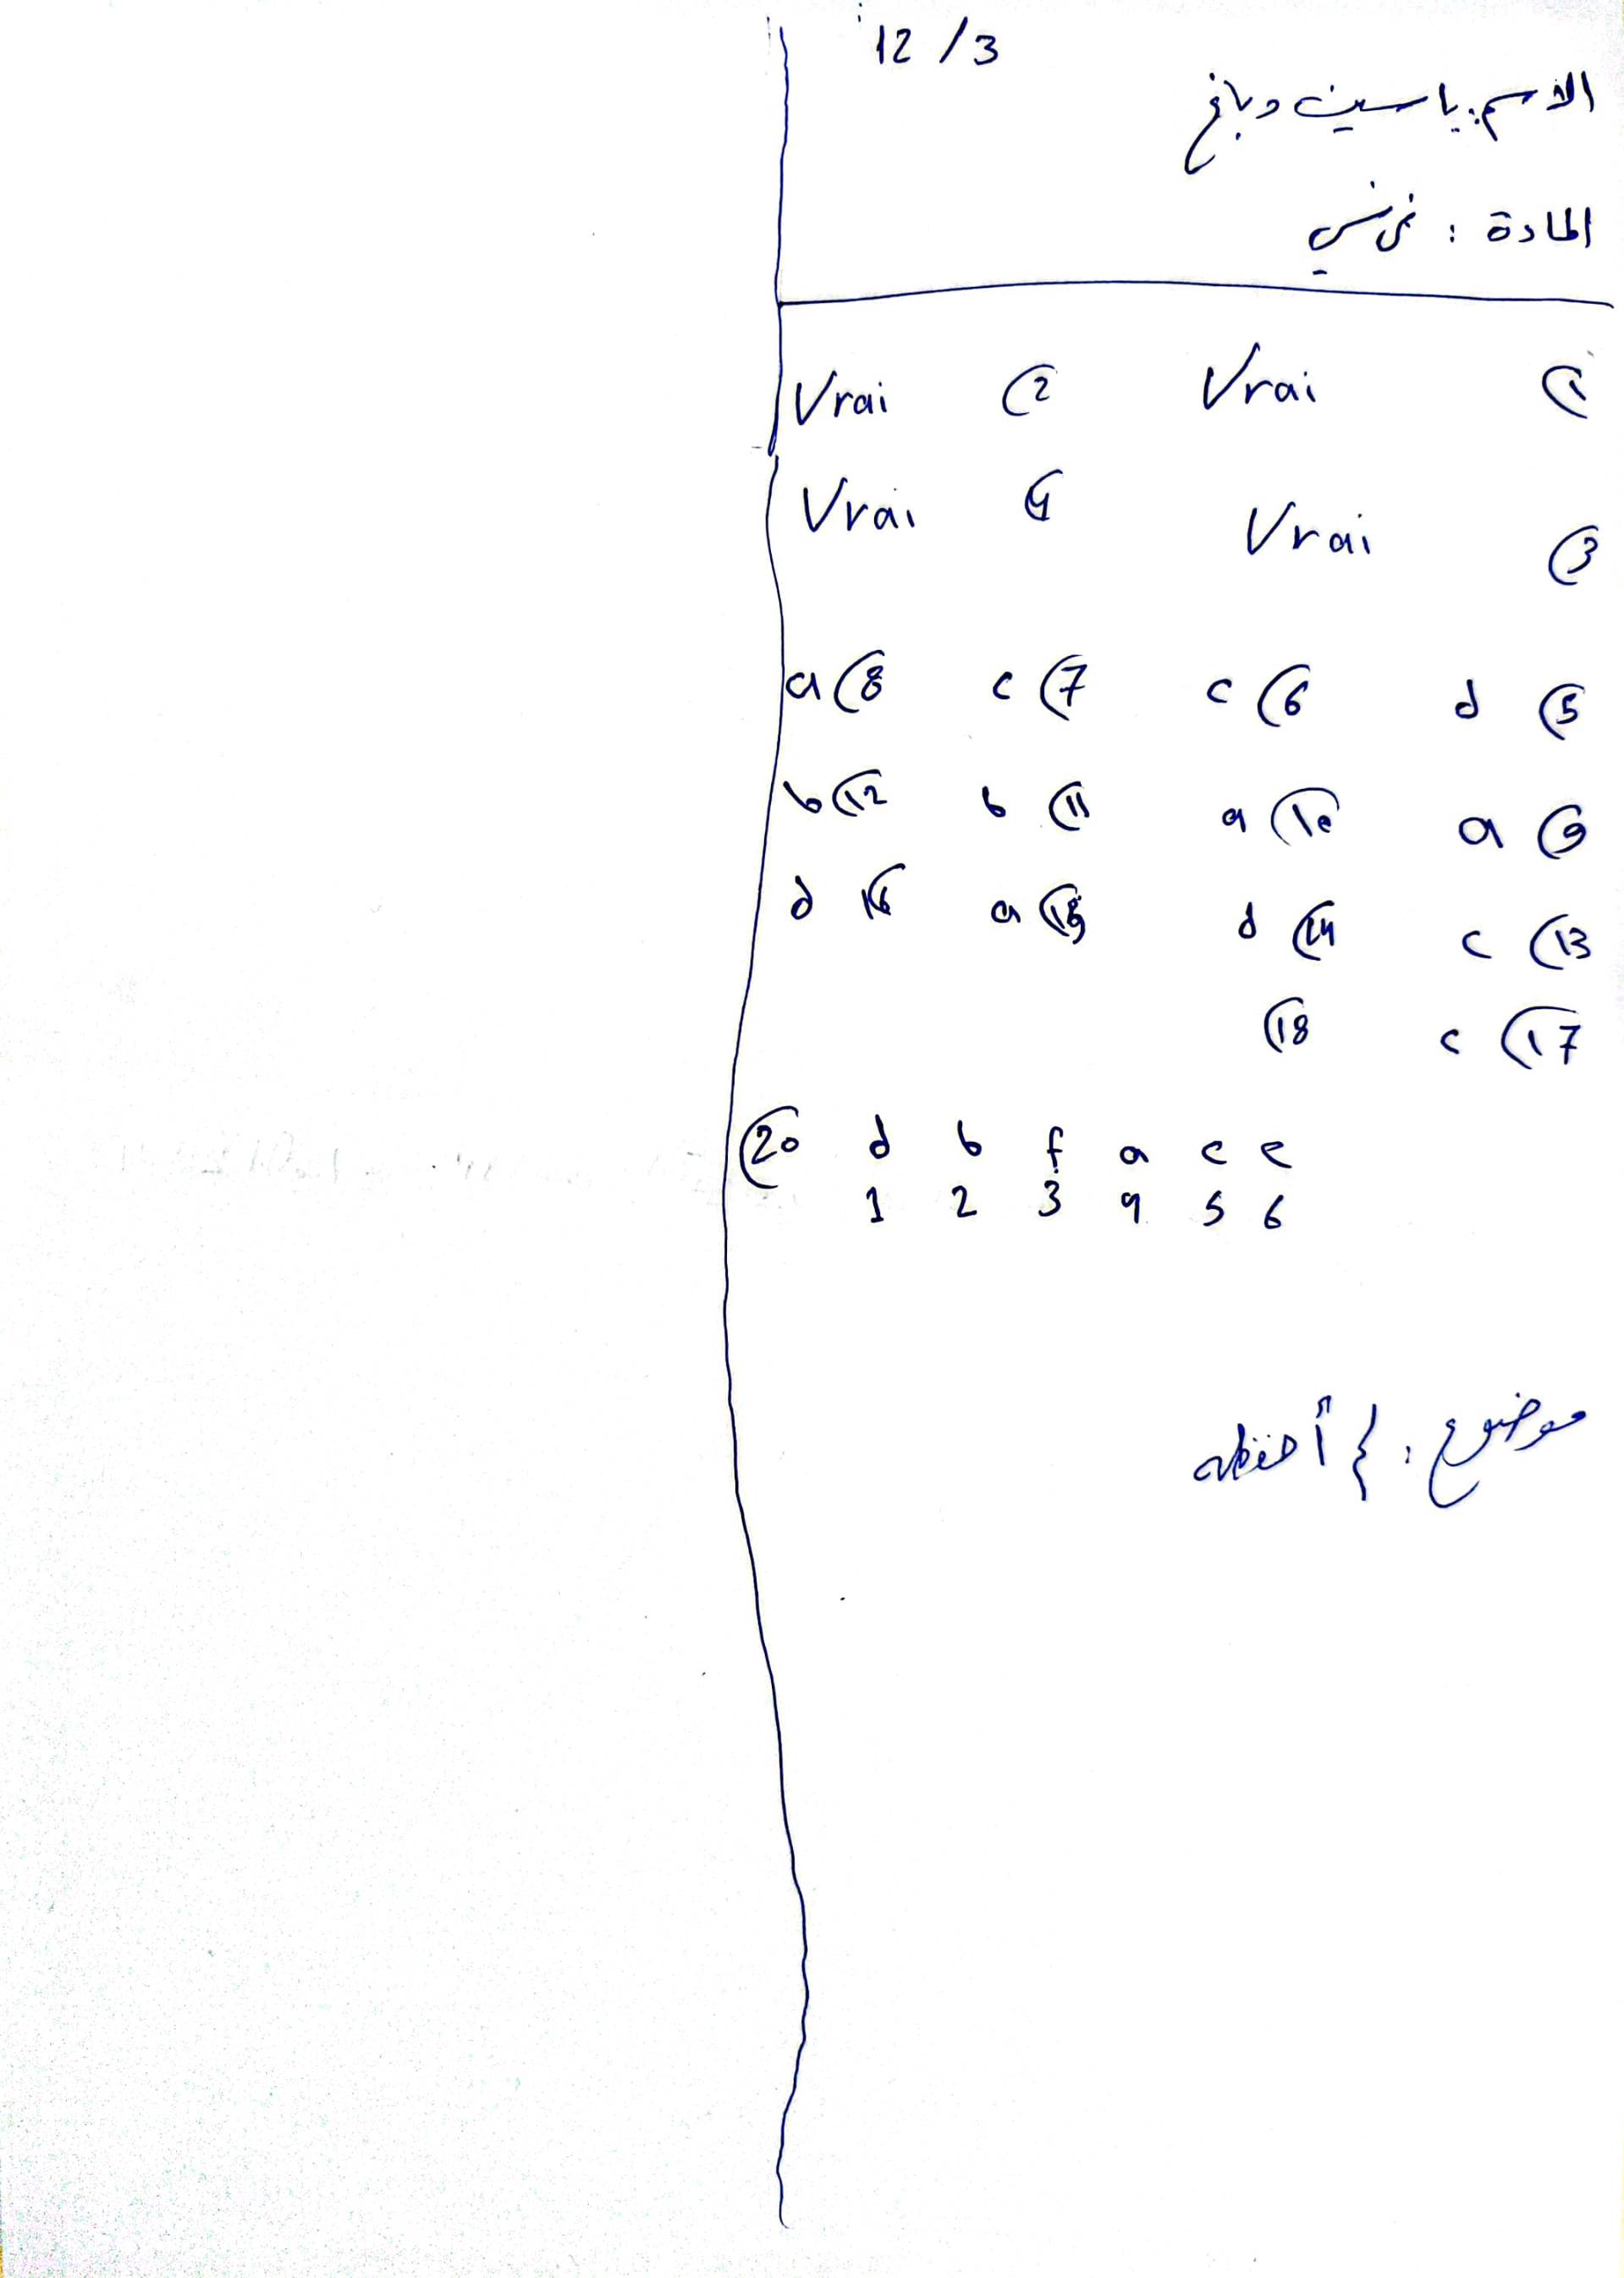 12 / 3
الاسم: ياسين دباغ
المادة : فرنسي
1) Vrai 2) Vrai
3) Vrai 4) Vrai
5) d 6) c 7) c 8) a
9) a 10) a 11) b 12) b
13) c 14) d 15) a 16) d
17) c 18)
20) d b f a c e
1 2 3 4 5 6
موضوع : لم أحفظه